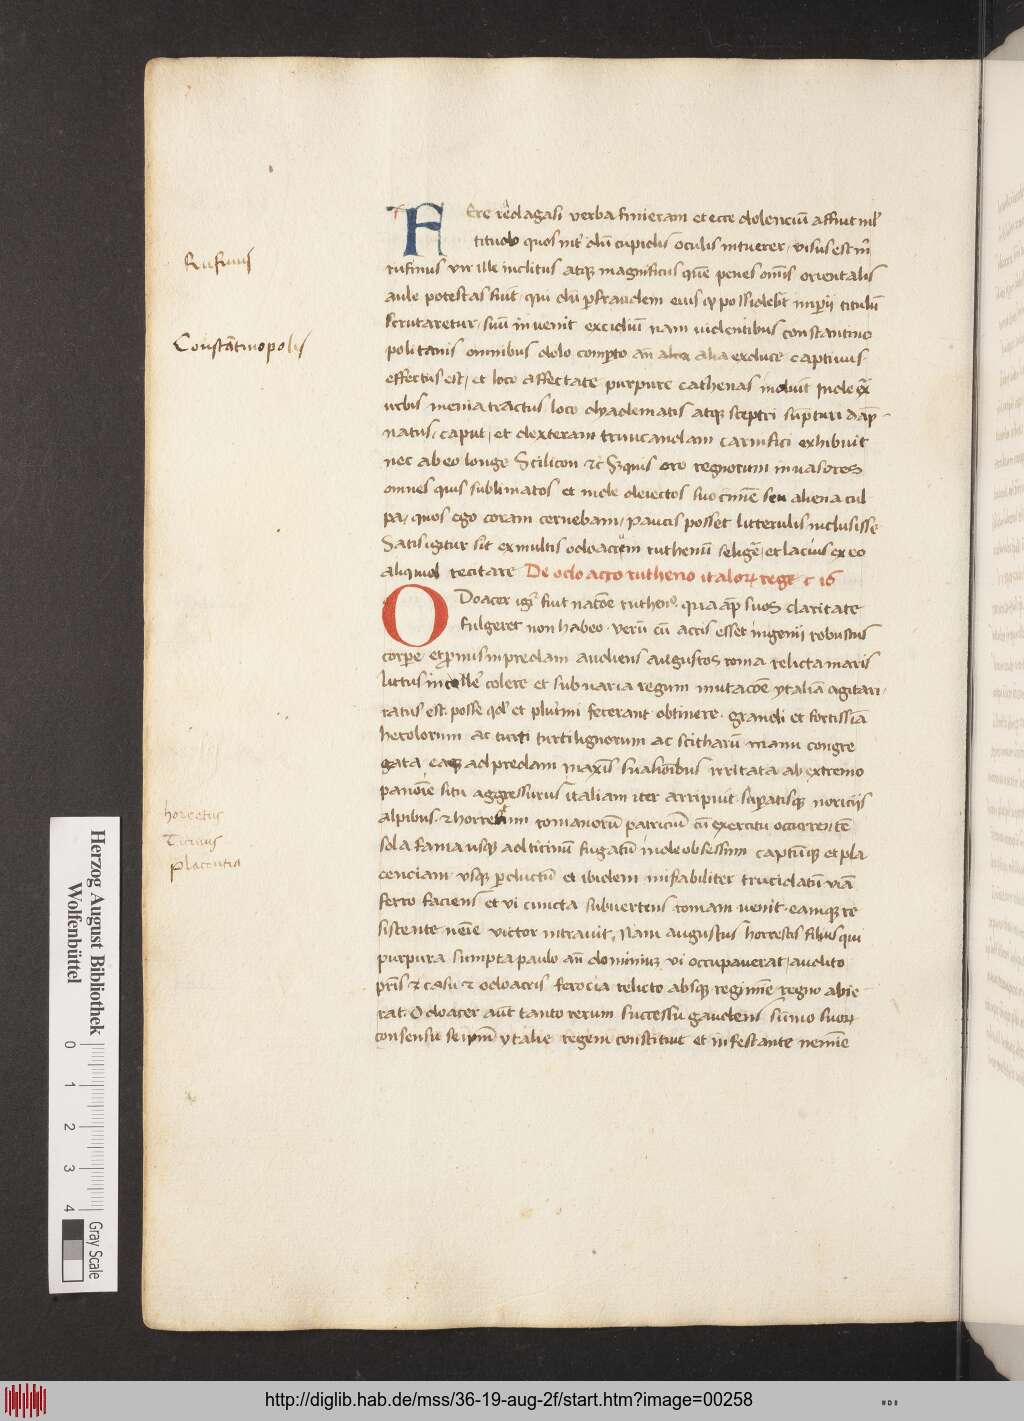 FEre redagasi verba finieram et ecce dolenciū affuit ml'
titudo quos int' dū cupidis oculis intuerer visus est m̄
Rufinus
rufinus vir ille inclitus atq; magnificus quē penes om̄is orientalis
aule potestas fuit, qui dū p fraudem eius q possidebt imp̄ii titulū
scrutaretur, suū invenit excidiū nam videntibus constantino
Constātinopolis
politanis omnibus dolo comp̄to an̄ alia exduce captivus
effectus est, et loco affectate purpure cathenas induit Inde ex̄
urbis menia tractus loco dyadematis atq; sceptri
natus, caput, et dexteram truncandam carnifici exhibuit
nec ab eo longe Stilicon ⁊c Sz quis ore regnorum invasores
omnes quis sublimatos et inde deiectos suo c̄mīe seu aliena cul
pa, quos ego coram cernebam, paucis posset litterulis inclusisse
Satis igitur sit ex multis odoacrem ruthenū seligē, et lacius ex eo
aliquid recitare De odoacro rutheno italoꝝ rege c 16
ODoacer ig' fuit natōe ruthen' qua ap̄ suos claritate
fulgeret non habeo verū cū acris esset ingenii robustus
corpe et p̄nus in predam audiens augustos roma relicta maris
littus incolle' colere et sub varia regum mutacōe ytaliā agitari
ratus est posse qd' et plurimi fecerant obtinere grandi et fortissia
herolorum ac turti turtilignorum ac scitharū manu congre
gata eaq; ad predam maxīs suasionibus irritata ab extremo
panoīe situ aggressurus italiam iter arripuit supatisq; noriciis
horestus
alpibus ⁊ horrestum romanorū patriciū cū exercitu occurrentē
Ticinus
sola fama usq; ad ticinū fugatū inde obsessum captūq; et pla
Placentia
cenciam usq; pductū et ibidem misabiliter trucidatū viā
ferro faciens et vi cuncta subvertens romam venit eamq; re
sistente neīe victor intravit, Nam augustus horrestis filius qui
purpura sumpta paulo an̄ dominiuz vi occupaverat, audito
pris ⁊ casu ⁊ odoacris ferocia relicto absq; regimīe regno abie
rat Odoacer aūt tanto rerum successu gaudens sumo suoꝝ
consensu se ytalie regem constituit et infestante nemīe
Herzog August Bibliothek
Wolfenbüttel
0 1 2 3 4
Gray Scale
http://diglib.hab.de/mss/36-19-aug-2f/start.htm?image=00258